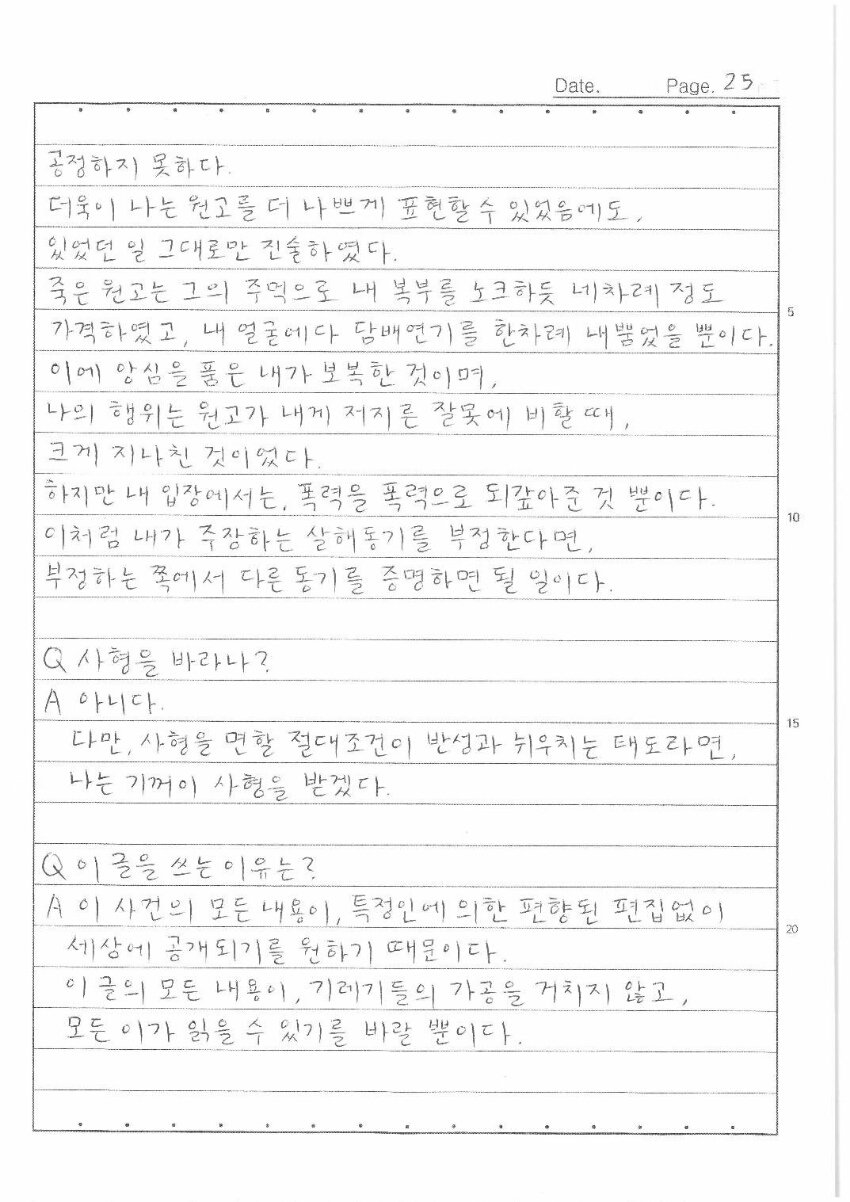 Date. Page. 25
공정하지 못하다.
더욱이 나는 원고를 더 나쁘게 표현할 수 있었음에도,
있었던 일 그대로만 진술하였다.
죽은 원고는 그의 주먹으로 내 복부를 노크하듯 네차례 정도
5
가격하였고, 내 얼굴에다 담배연기를 한차례 내뿜었을 뿐이다.
이에 앙심을 품은 내가 보복한 것이며,
나의 행위는 원고가 내게 저지른 잘못에 비할 때,
크게 지나친 것이었다.
하지만 내 입장에서는, 폭력을 폭력으로 되갚아준 것 뿐이다.
10
이처럼 내가 주장하는 살해동기를 부정한다면,
부정하는 쪽에서 다른 동기를 증명하면 될 일이다.
Q 사형을 바라나?
A 아니다.
15
다만, 사형을 면할 절대조건이 반성과 뉘우치는 태도라면,
나는 기꺼이 사형을 받겠다.
Q 이 글을 쓰는 이유는?
A 이 사건의 모든 내용이, 특정인에 의한 편향된 편집없이
20
세상에 공개되기를 원하기 때문이다.
이 글의 모든 내용이, 기레기들의 가공을 거치지 않고,
모든 이가 읽을 수 있기를 바랄 뿐이다.